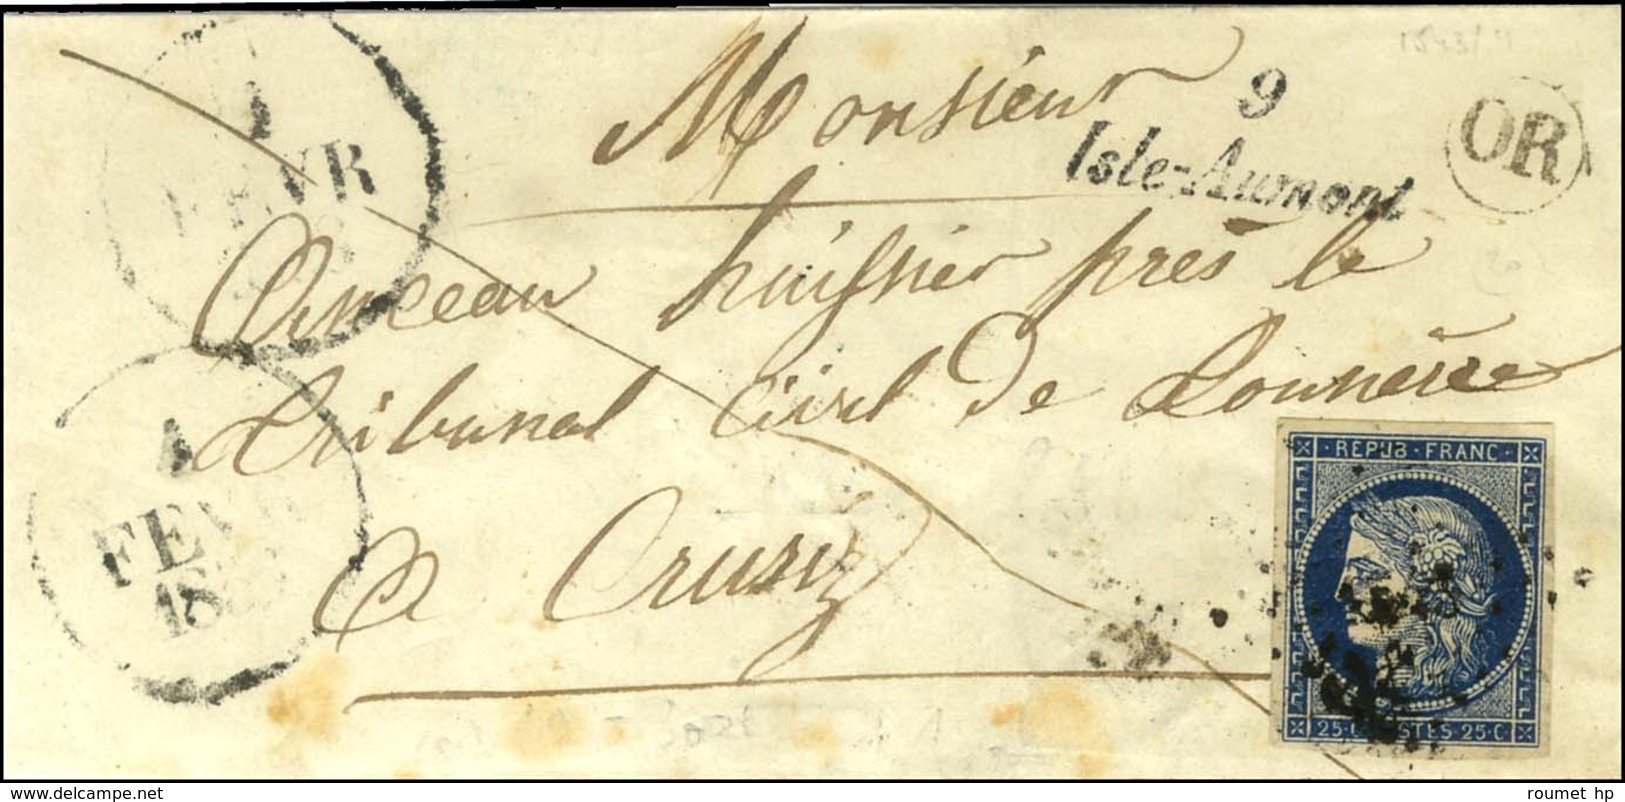 Monsieur
9
Isle-Aumont
OR
huissier près le
tribunal Civil De Tonnerre
a Cruzy
FEVR
4
FEV
18
REPUB · FRANC ·
25·C
25·C
www.delcampe.net
roumet hp